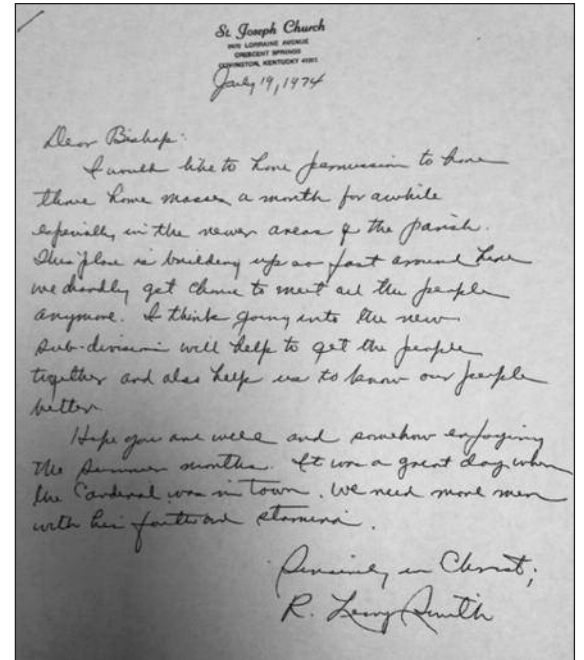 St. Joseph Church
LORRAINE AVENUE
CRESCENT SPRINGS
COVINGTON, KENTUCKY
July 19, 1974
Dear Bishop:
I would like to have permission to have
three home masses a month for awhile
especially in the newer areas of the parish.
This place is building up so fast around here
we hardly get chance to meet all the people
anymore. I think going into the new
sub-division will help to get the people
together and also help us to know our people
better.
Hope you are well and somehow enjoying
the summer months. It was a great day when
the Cardinal was in town. We need more men
with his faith and stamina.
Sincerely in Christ;
R. Leroy Smith